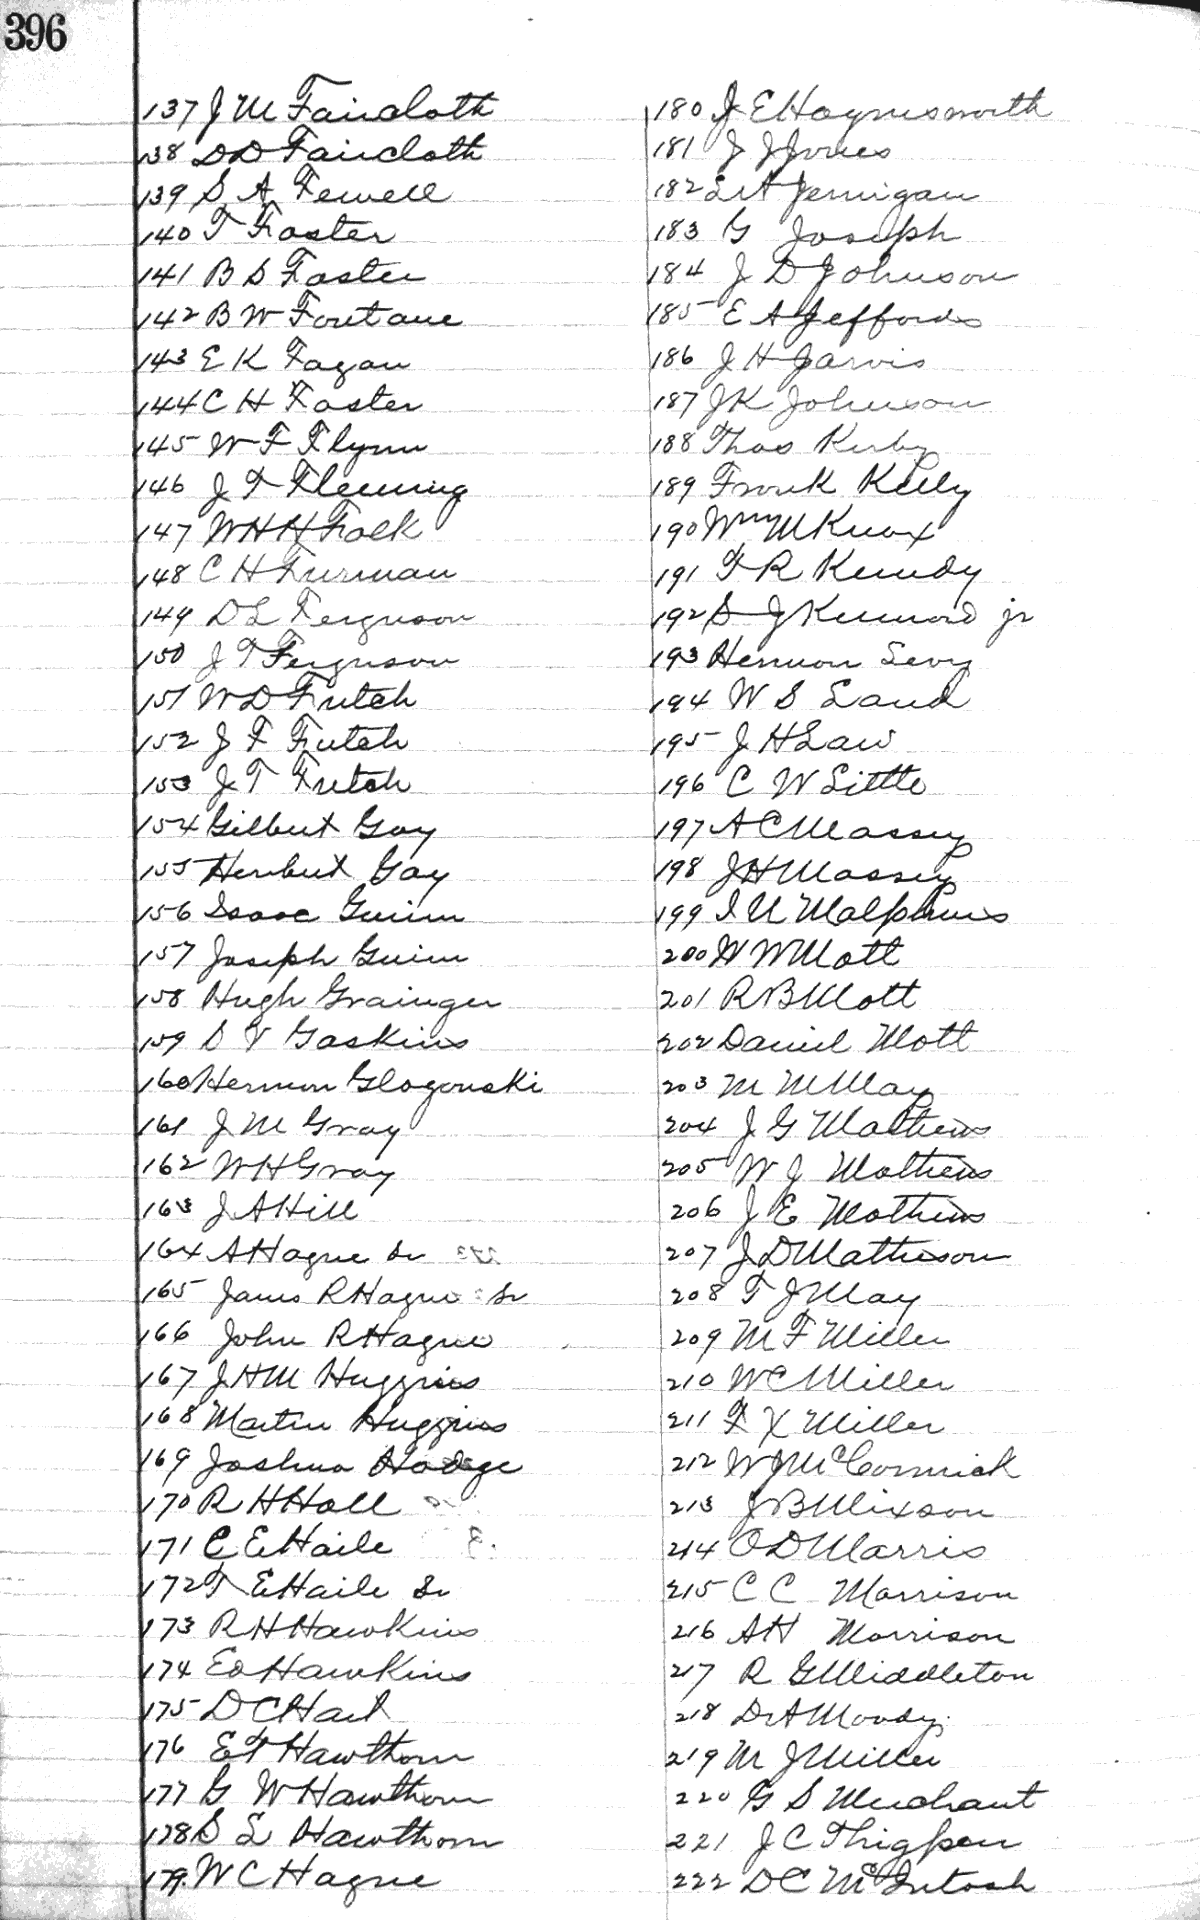 396
137 J M Faircloth
138 D D Faircloth
139 S A Fewell
140 T Foster
141 B S Foster
142 B W Fontane
143 E K Fagan
144 C H Foster
145 W F Flynn
146 J T Fleming
147 W H H Folk
148 C H Furman
149 D L Ferguson
150 J T Ferguson
151 W D Futch
152 J F Futch
153 J T Futch
154 Gilbert Gay
155 Herbert Gay
156 Isaac Guinn
157 Joseph Guinn
158 Hugh Grainger
159 S V Gaskins
160 Hermon Glogouski
161 J M Gray
162 W H Gray
163 J A Hill
164 A Hague Sr
165 James R Hague Sr
166 John R Hague
167 J H M Huggins
168 Martin Huggins
169 Joshua Hodge
170 R H Hall
171 C E Haile
172 T E Haile Sr
173 R H Hawkins
174 Ed Hawkins
175 D C Hart
176 E T Hawthorn
177 G W Hawthorn
178 S L Hawthorn
179. W C Hague
180 J E Haynesworth
181 J J Jones
182 L A Jernigan
183 G Joseph
184 J D Johnson
185 E A Jeffords
186 J H Jarvis
187 J K Johnson
188 Thos Kirby
189 Frank Kelly
190 Wm M Knox
191 F R Kennedy
192 S J Kennard jr
193 Hermon Levy
194 W S Land
195 J H Law
196 C W Little
197 A C Massey
198 J H Massey
199 I N Malphurs
200 W W Mott
201 R B Mott
202 Daniel Mott
203 M M May
204 J G Mathews
205 W J Mathews
206 J E Mathews
207 J D Matheson
208 T J May
209 M F Miller
210 W C Miller
211 F X Miller
212 W J McCormick
213 J B Mixson
214 O D Morris
215 C C Morrison
216 A H Morrison
217 R G Middleton
218 Dr A Moody.
219 M J Miller
220 G S Merchant
221 J C Thigpen
222 D C McIntosh